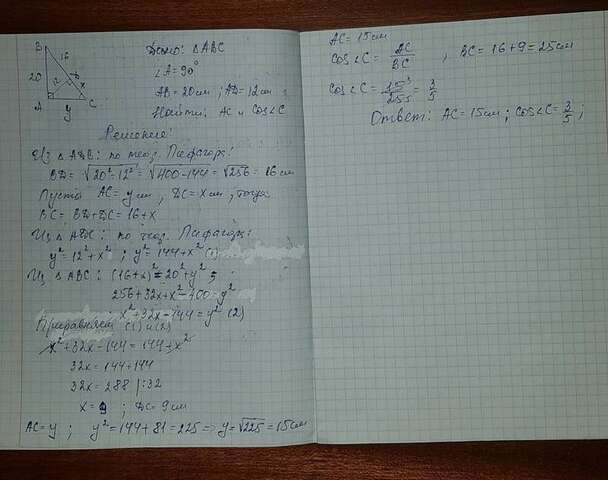 B
16
20
12
D
x
A
y
C
Дано: △ABC
∠A=90°
AB=20см; AD=12см
Найти: AC и cos∠C
Решение:
Из △ADB: по теор. Пифагора:
BD=√20²-12²=√400-144=√256=16см
Пусть AC=y см, DC=x см, тогда
BC=BD+DC=16+x
Из △ADC: по теор. Пифагора:
y²=12²+x²; y²=144+x² (1)
Из △ABC: (16+x)²=20²+y²;
256+32x+x²-400=y²
x²+32x-144=y² (2)
Приравняем (1) и (2)
x²+32x-144=144+x²
32x=144+144
32x=288 |:32
x=9; DC=9см
AC=y; y²=144+81=225=>y=√225=15см
AC=15см
cos∠C=AC/BC, BC=16+9=25см
cos∠C=15³/25 5=3/5
Ответ: AC=15см; cos∠C=3/5;